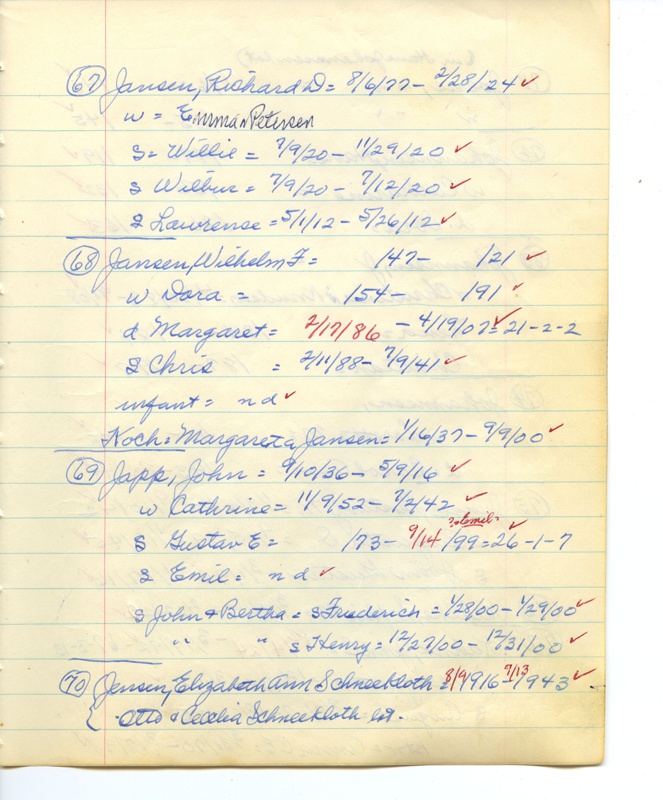 67 Jansen, Richard D = 8/6/77 - 2/28/24 ✓
w = Emma Petersen
S = Willie = 7/9/20 - 11/29/20 ✓
S Wilbur = 7/9/20 - 7/12/20 ✓
S Lawrense = 5/1/12 - 5/26/12 ✓
68 Jansen, Wilhelm F = /47 - /21 ✓
w Dora = /54 - /91 ✓
d Margaret = 2/17/86 - 4/19/07 = 21-2-2 ✓
S Chris = 2/11/88 - 7/9/41 ✓
infant = n d ✓
Koch = Margareta Jansen = 1/16/37 - 9/9/00 ✓
69 Japp, John = 9/10/36 - 5/9/16 ✓
w Cathrine = 11/9/52 - 7/2/42 ✓
S Gustav E = /73 - 9/14/99 = 26-1-7 ✓
S Emil = n d ✓
S John & Bertha = S Frederich = 1/28/00 - 1/29/00 ✓
" " S Henry = 12/27/00 - 12/31/00 ✓
70 Jensen, Elizabeth Ann Schneekloth = 8/9 1916 - 7/13 1943 ✓
Otto & Cecelia Schneekloth lot.